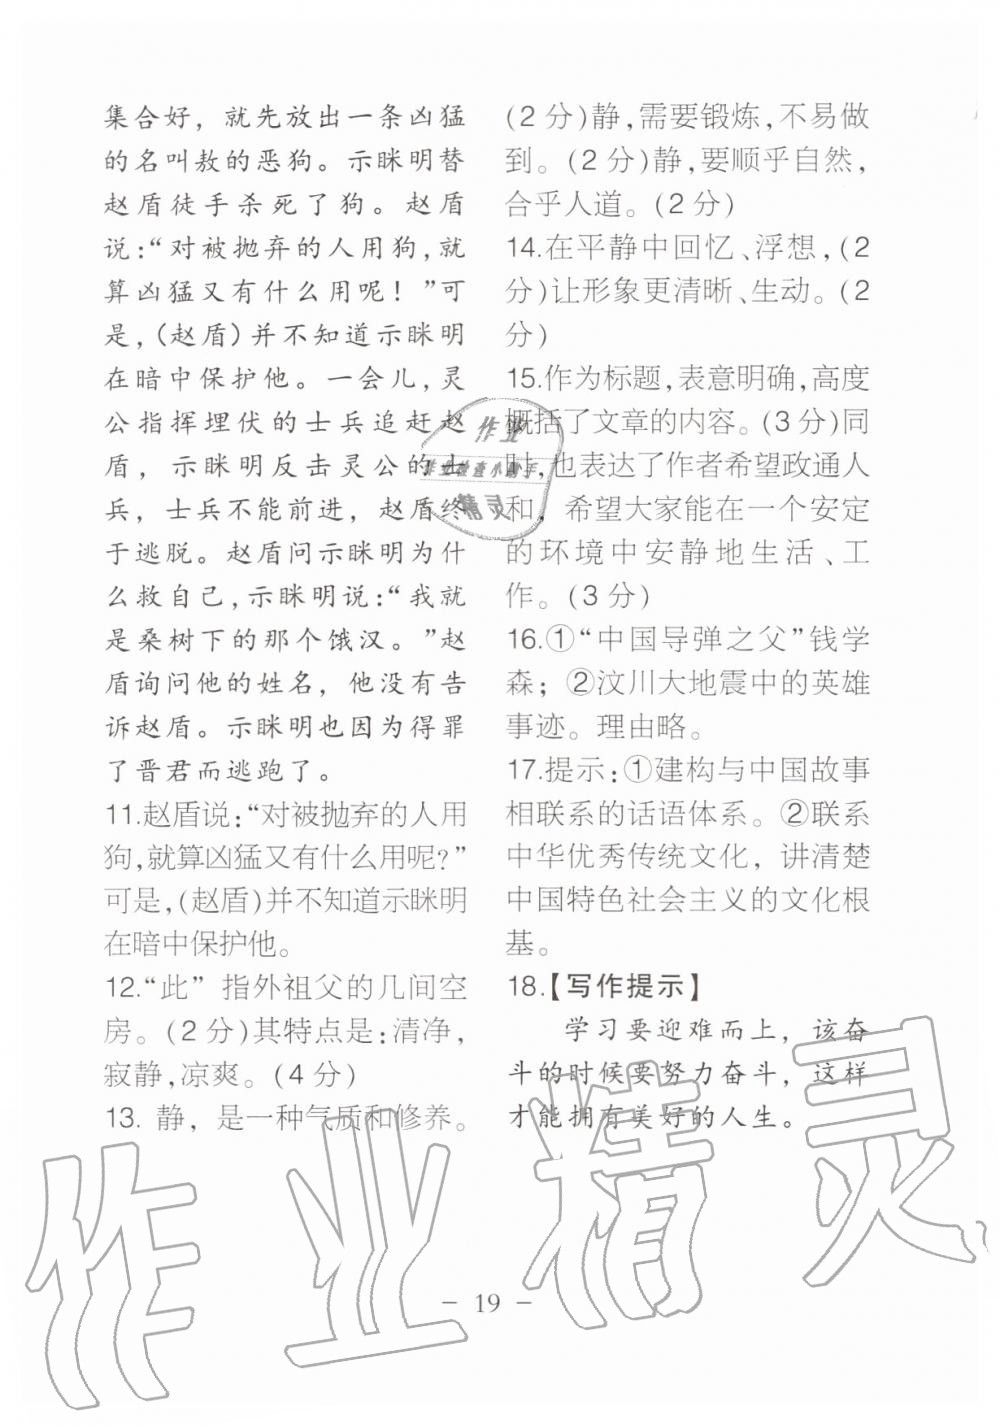 集合好，就先放出一条凶猛
的名叫敖的恶狗。示眯明替
赵盾徒手杀死了狗。赵盾
说：“对被抛弃的人用狗，就
算凶猛又有什么用呢！”可
是，（赵盾）并不知道示眯明
在暗中保护他。一会儿，灵
公指挥埋伏的士兵追赶赵
盾，示眯明反击灵公的士
兵，士兵不能前进，赵盾终
于逃脱。赵盾问示眯明为什
么救自己，示眯明说：“我就
是桑树下的那个饿汉。”赵
盾询问他的姓名，他没有告
诉赵盾。示眯明也因为得罪
了晋君而逃跑了。
11.赵盾说：“对被抛弃的人用
狗，就算凶猛又有什么用呢？”
可是，（赵盾）并不知道示眯明
在暗中保护他。
12.“此”指外祖父的几间空
房。（2分）其特点是：清净，
寂静，凉爽。（4分）
13. 静，是一种气质和修养。
（2分）静，需要锻炼，不易做
到。（2分）静，要顺乎自然，
合乎人道。（2分）
14.在平静中回忆、浮想，（2
分）让形象更清晰、生动。（2
分）
15.作为标题，表意明确，高度
概括了文章的内容。（3分）同
时，也表达了作者希望政通人
和，希望大家能在一个安定
的环境中安静地生活、工
作。（3分）
16.①“中国导弹之父”钱学
森；②汶川大地震中的英雄
事迹。理由略。
17.提示：①建构与中国故事
相联系的话语体系。②联系
中华优秀传统文化，讲清楚
中国特色社会主义的文化根
基。
18.【写作提示】
学习要迎难而上，该奋
斗的时候要努力奋斗，这样
才能拥有美好的人生。
作业
作业检查小助手
精灵
作业精灵
- 19 -